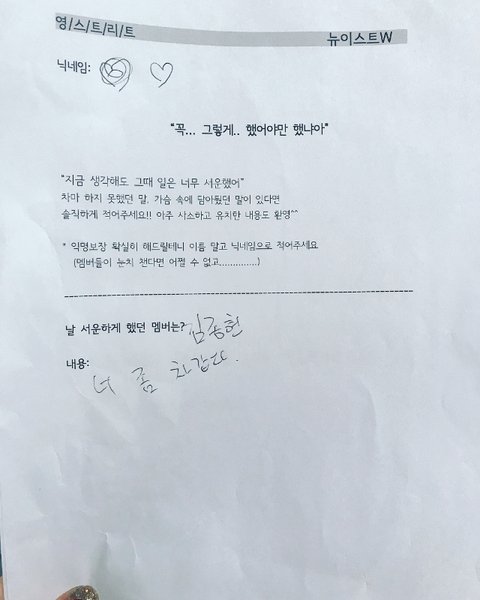 영/스/트/리/트
뉴이스트W
닉네임:
"꼭... 그렇게.. 했어야만 했냐아"
"지금 생각해도 그때 일은 너무 서운했어"
차마 하지 못했던 말, 가슴 속에 담아뒀던 말이 있다면
솔직하게 적어주세요!! 아주 사소하고 유치한 내용도 환영^^
* 익명보장 확실히 해드릴테니 이름 말고 닉네임으로 적어주세요
(멤버들이 눈치 챈다면 어쩔 수 없고..............)
날 서운하게 했던 멤버는? 김종현
내용:
너 좀 차갑다.